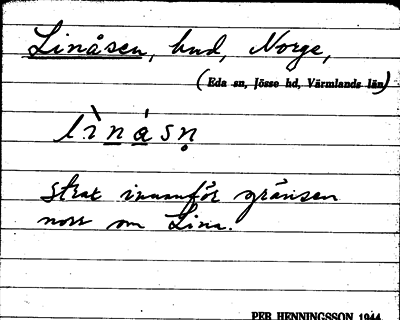 Linåsen, hmd, Norge,
(Eda sn, Jösse hd, Värmlands län)
lìnásn̥
strax innanför gränsen
norr om Lina.
PER HENNINGSSON 1944